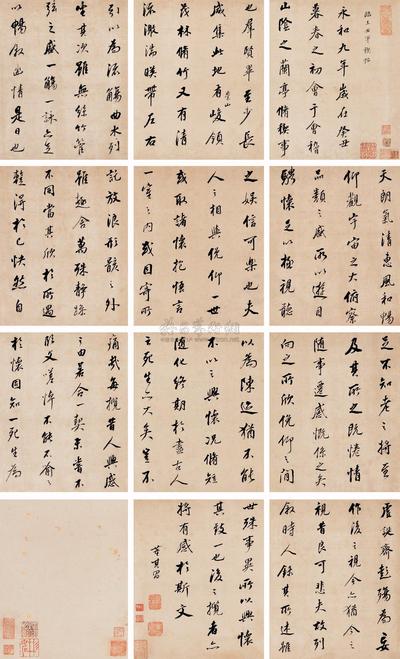 臨王右軍禊帖
永和九年歲在癸丑
暮春之初會于會稽
山陰之蘭亭脩禊事
也羣賢畢至少長
咸集此地有崇山峻領
茂林脩竹又有清
流激湍暎帶左右
引以為流觴曲水列
坐其次雖無絲竹管
弦之盛一觴一詠亦足
以暢叙幽情是日也
天朗氣清惠風和暢
仰觀宇宙之大俯察
品類之盛所以遊目
騁懷足以極視聽
之娛信可樂也夫
人之相與俯仰一世
或取諸懷抱悟言
一室之內或因寄所
託放浪形骸之外
雖趣舍萬殊靜躁
不同當其欣於所遇
暫得於己快然自
足不知老之將至
及其所之既惓情
隨事遷感慨係之矣
向之所欣俛仰之間
以為陳迹猶不能
不以之興懷況脩短
隨化終期於盡古人
云死生亦大矣豈不
痛哉每攬昔人興感
之由若合一契未嘗不
臨文嗟悼不能喻之
於懷固知一死生為
虛誕齊彭殤為妄
作後之視今亦猶今之
視昔良可悲夫故列
叙時人錄其所述雖
世殊事異所以興懷
其致一也後之攬者亦
將有感於斯文
董其昌